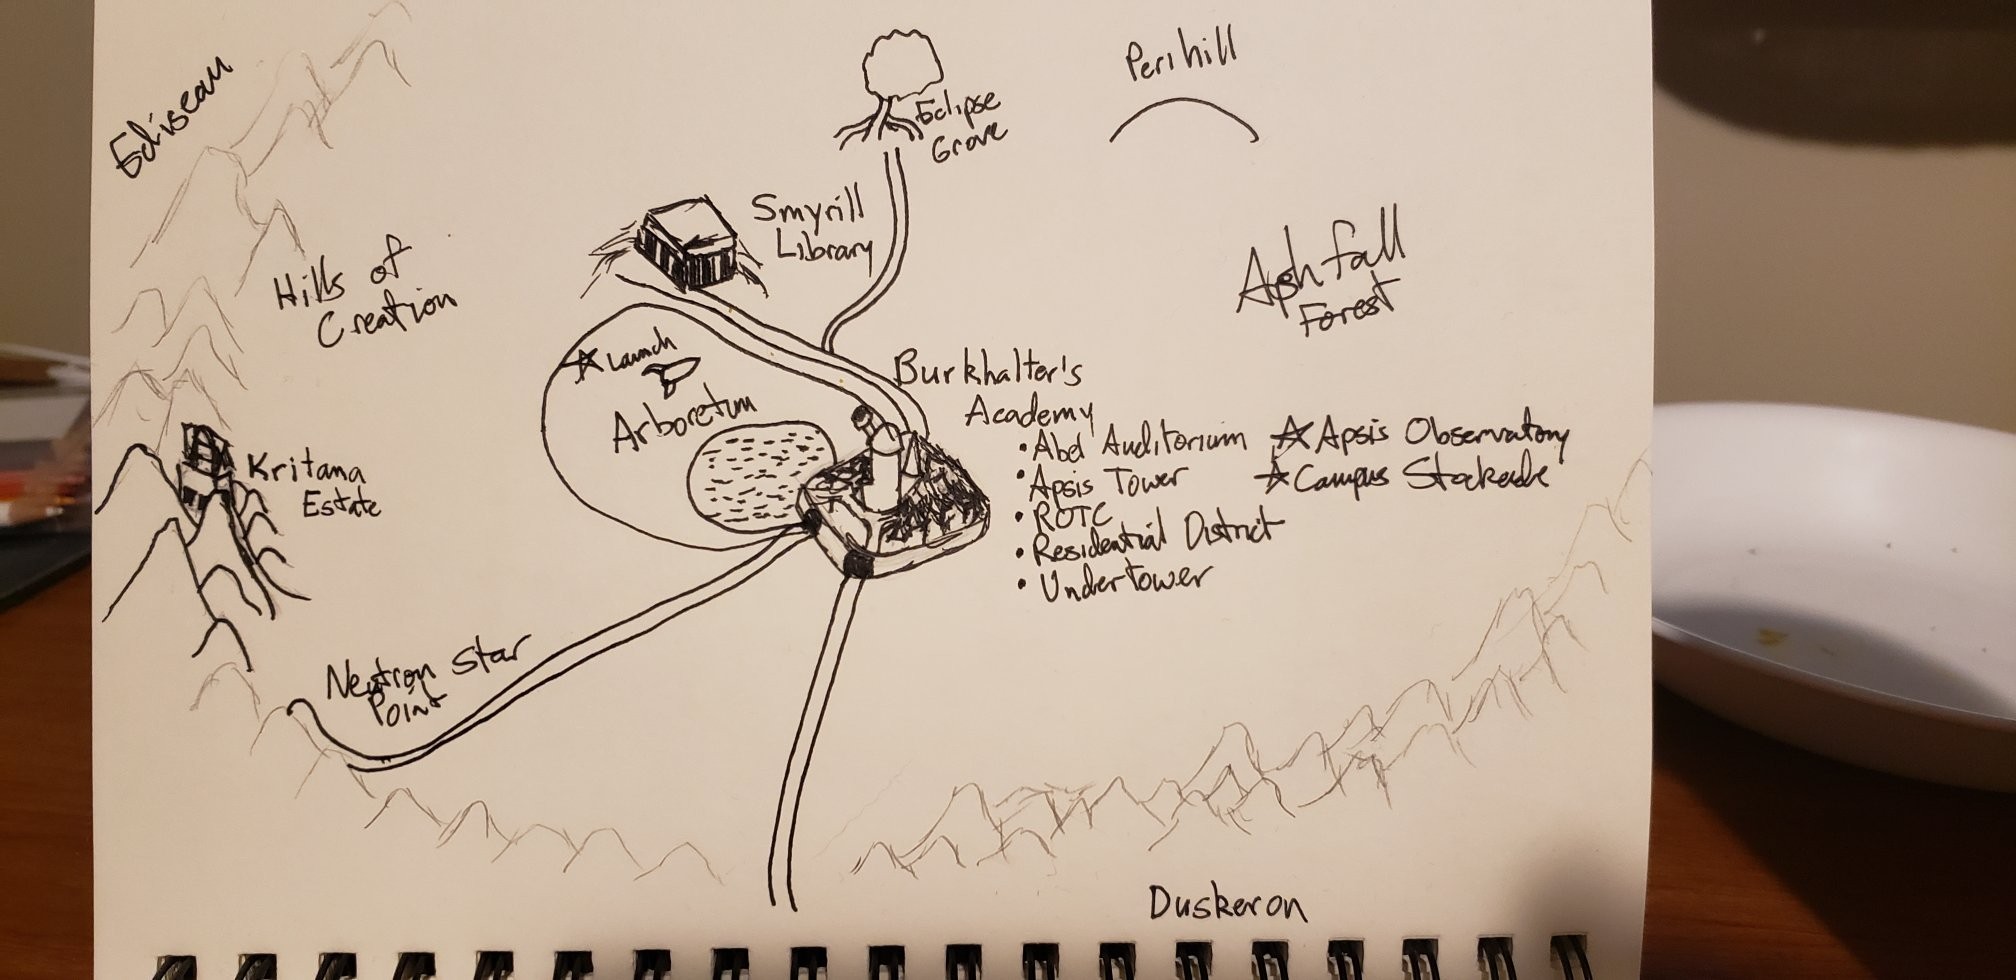 Perihill
Edisean
Eclipse
Grove
Smyrill
Library
Ashfall
Forest
Hills of
Creation
☆ Launch
Arboretum
Burkhalter's
Academy
• Abel Auditorium
• Apsis Tower
• ROTC
• Residential District
• Undertower
☆ Apsis Observatory
☆ Campus Stockade
Kritana
Estate
Neutron Star
Point
Duskeron